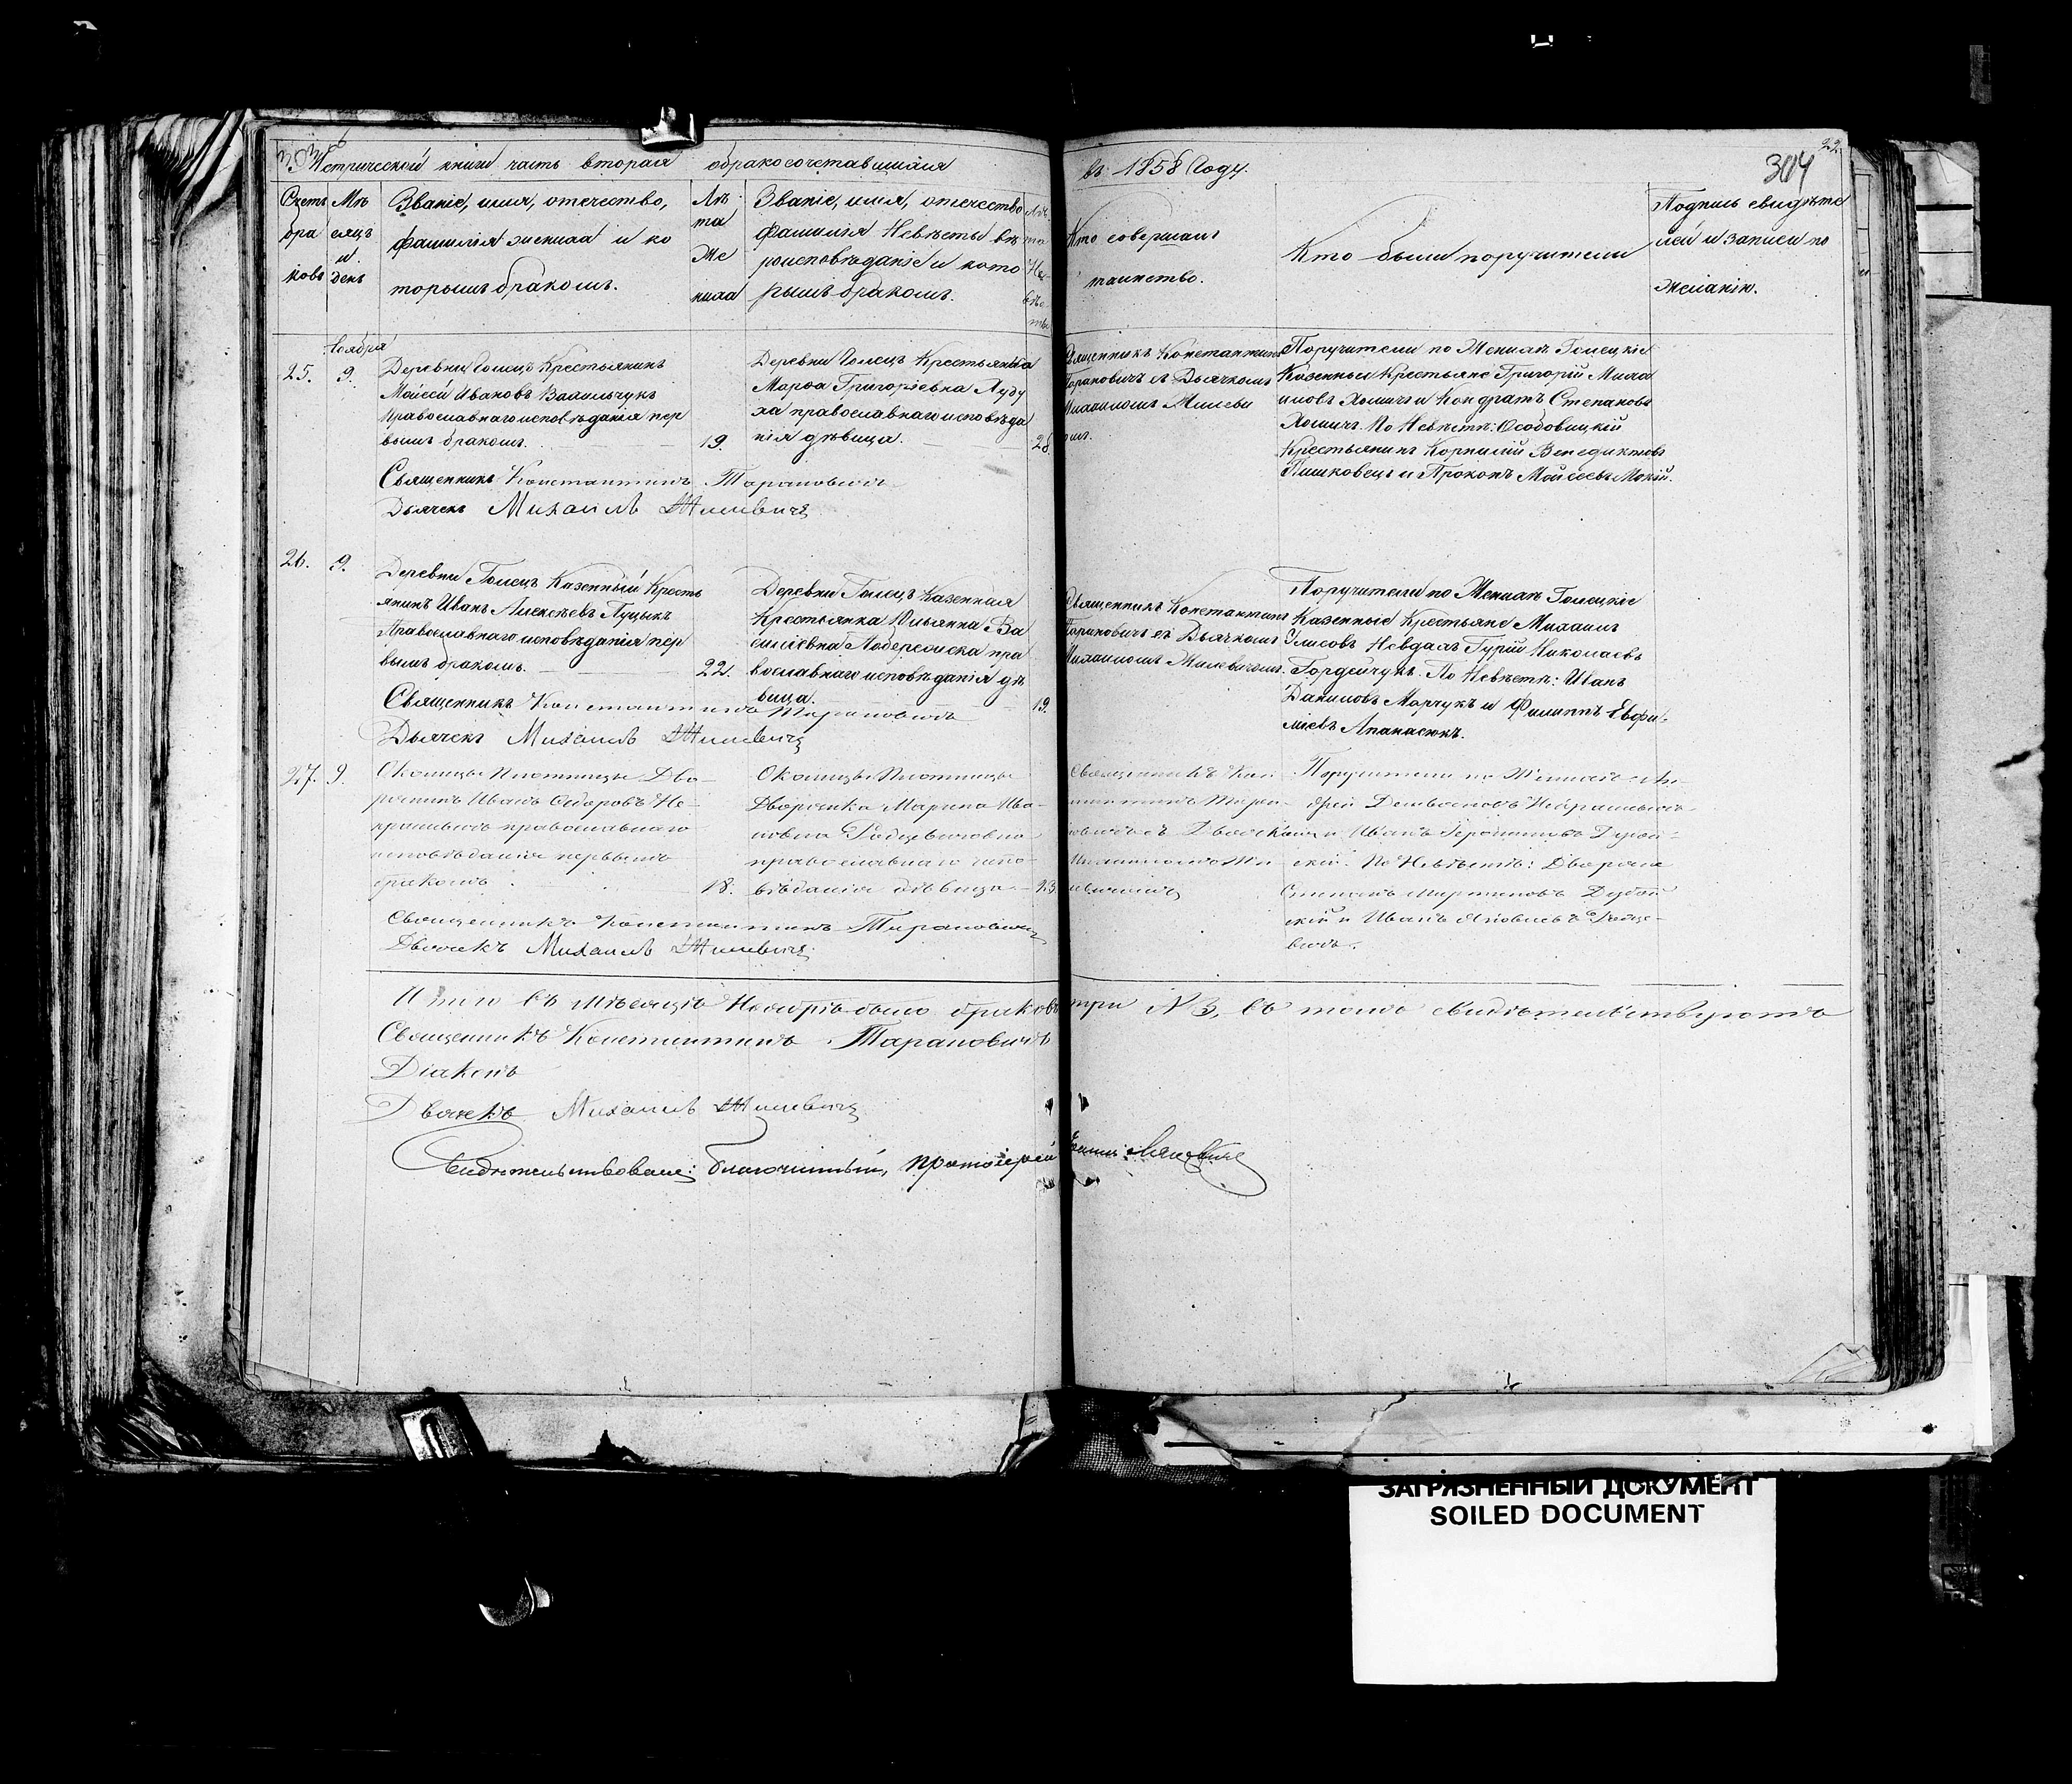 303 об
Метрической книги часть вторая о бракосочетавшихся
въ 1858 Году.
304
22.
Счетъ бра ковъ
Мѣ сяцъ и день
Званіе, имя, отчество,
фамилія жениха и ко
торымъ бракомъ.
Лѣ та Же ниха
Званіе, имя, отчество
фамилія Невѣсты вѣ
роисповѣданіе и кото
рымъ бракомъ.
Лѣ та Не вѣс ты
Кто совершалъ
таинство.
Кто были поручители
Подпись свидѣте
лей и записи по
желанію.
Ноября
25.
9.
Деревни Голецъ Крестьянинъ
Мойсей Ивановъ Васильчукъ
Православнаго исповѣданія пер
вымъ бракомъ.
19.
Деревни Голецъ Крестьянка
Марѳа Григоріевна Луду
ха православнаго исповѣда
нія дѣвица.
28
Священникъ Константинъ
Тарановичъ съ Дьячкомъ
Михаиломъ Жилеви
омъ.
Поручители по Женихѣ Голецкіе
Казенные Крестьяне Григорій Миха
иловъ Хомичъ и Кондратъ Степановъ
Хомичъ. По Невѣстѣ: Особовицкій
Крестьянинъ Корнилій Венедиктовъ
и Прокопъ Мойсеевъ
Священникъ Константинъ Тарановичъ
Дьячекъ Михаилъ Жилевичъ
26.
9.
Деревни Голецъ Казенный Кресть
янинъ Иванъ Алексѣевъ Луцыкъ
Православнаго исповѣданія пер
вымъ бракомъ.
22.
Деревни Голецъ Казенная
Крестьянка Ульянна Ва
силіевна пра
вославнаго исповѣданія дѣ
вица.
19.
Священникъ Константинъ
Тарановичъ съ Дьячкомъ
Михаиломъ Жилевичемъ.
Поручители по Женихѣ Голецкіе
Казенные Крестьяне Михаилъ
Невдахъ Гурій Николаевъ
Гордейчукъ. По Невѣстѣ: Иванъ
Даниловъ Марчукъ и Филиппъ Евфи
міевъ Апанасюкъ.
Священникъ Константинъ Тарановичъ
Дьячекъ Михаилъ Жилевичъ
27.
9.
Околицы Плотницы Дво-
рянинъ Иванъ Ѳедоровъ Не-
крашевичъ православнаго
исповѣданія первымъ
бракомъ.
18.
Околицы Плотницы
Дворянка Марина Ива-
новна Родцевичовна
православнаго испо-
вѣданія дѣвица.
23.
Священникъ Кон
стантинъ Таран
овичъ съ Дьячком
Михаиломъ Жи
левичемъ
Поручители по Женихѣ Ан-
дрей Некрашевичъ
и Иванъ Дубой-
скій. По Невѣстѣ: Дворяне
Степанъ Мартиновъ Дубой
скій и Иванъ Яковлевъ Родце-
вичъ.
Священникъ Константинъ Тарановичъ
Дьячекъ Михаилъ Жилевичъ.
Итого въ мѣсяцѣ Ноябрѣ было браковъ три № 3, въ томъ свидѣтельствуютъ
Священникъ Константинъ Тарановичъ
Діаконъ
Дьячекъ Михаилъ Жилевичъ
Свидѣтельствовалъ: благочинный, протоіерей
ЗАГРЯЗНЕННЫЙ ДОКУМЕНТ
SOILED DOCUMENT